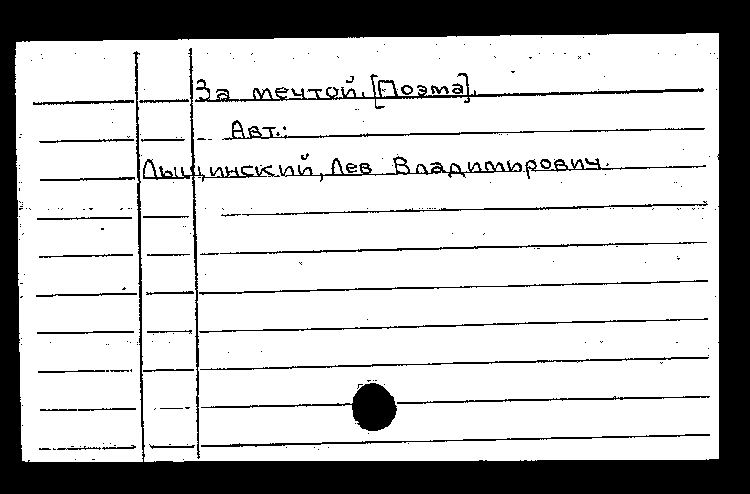 За мечтой. [Поэма].
Авт.:
Лыщинский, Лев Владимирович.